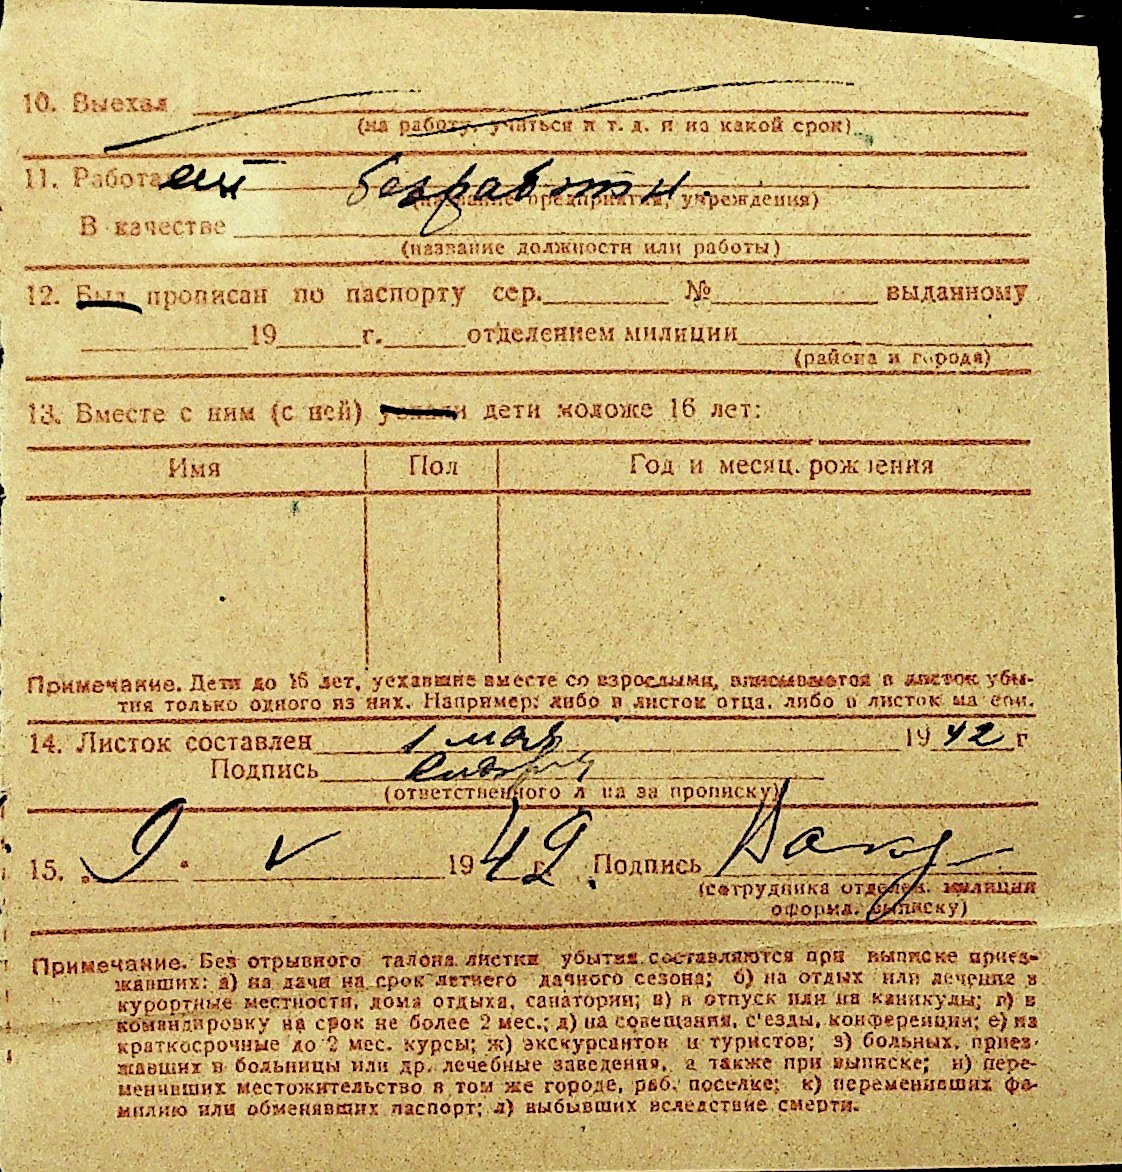 10. Выехал
(на работу, учиться и т. д. и на какой срок)
11. Работа
(название предприятия, учреждения)
В качестве
(название должности или работы)
12. Был прописан по паспорту сер. № выданному
19 г. отделением милиции
(района и города)
13. Вместе с ним (с ней) уехали дети моложе 16 лет:
Имя Пол Год и месяц. рождения
Примечание. Дети до 16 лет, уехавшие вместе со взрослыми, вписываются в листок убы-
тия только одного из них. Например: либо в листок отца, либо в листок матери.
14. Листок составлен 1 мая 1942 г
Подпись
(ответственного лица за прописку)
15. 9. V 1949 г. Подпись
(сотрудника отделен. милиции
оформл. выписку)
Примечание. Без отрывного талона листки убытия составляются при выписке приез-
жавших: а) на дачи на срок летнего дачного сезона; б) на отдых или лечение в
курортные местности, дома отдыха, санатории; в) в отпуск или на каникулы; г) в
командировку на срок не более 2 мес.; д) на совещания, с'езды, конференции; е) на
краткосрочные до 2 мес. курсы; ж) экскурсантов и туристов; з) больных, приез-
жавших в больницы или др. лечебные заведения, а также при выписке; и) пере-
менивших местожительство в том же городе, раб. поселке; к) переменивших фа-
милию или обменявших паспорт; л) выбывших вследствие смерти.